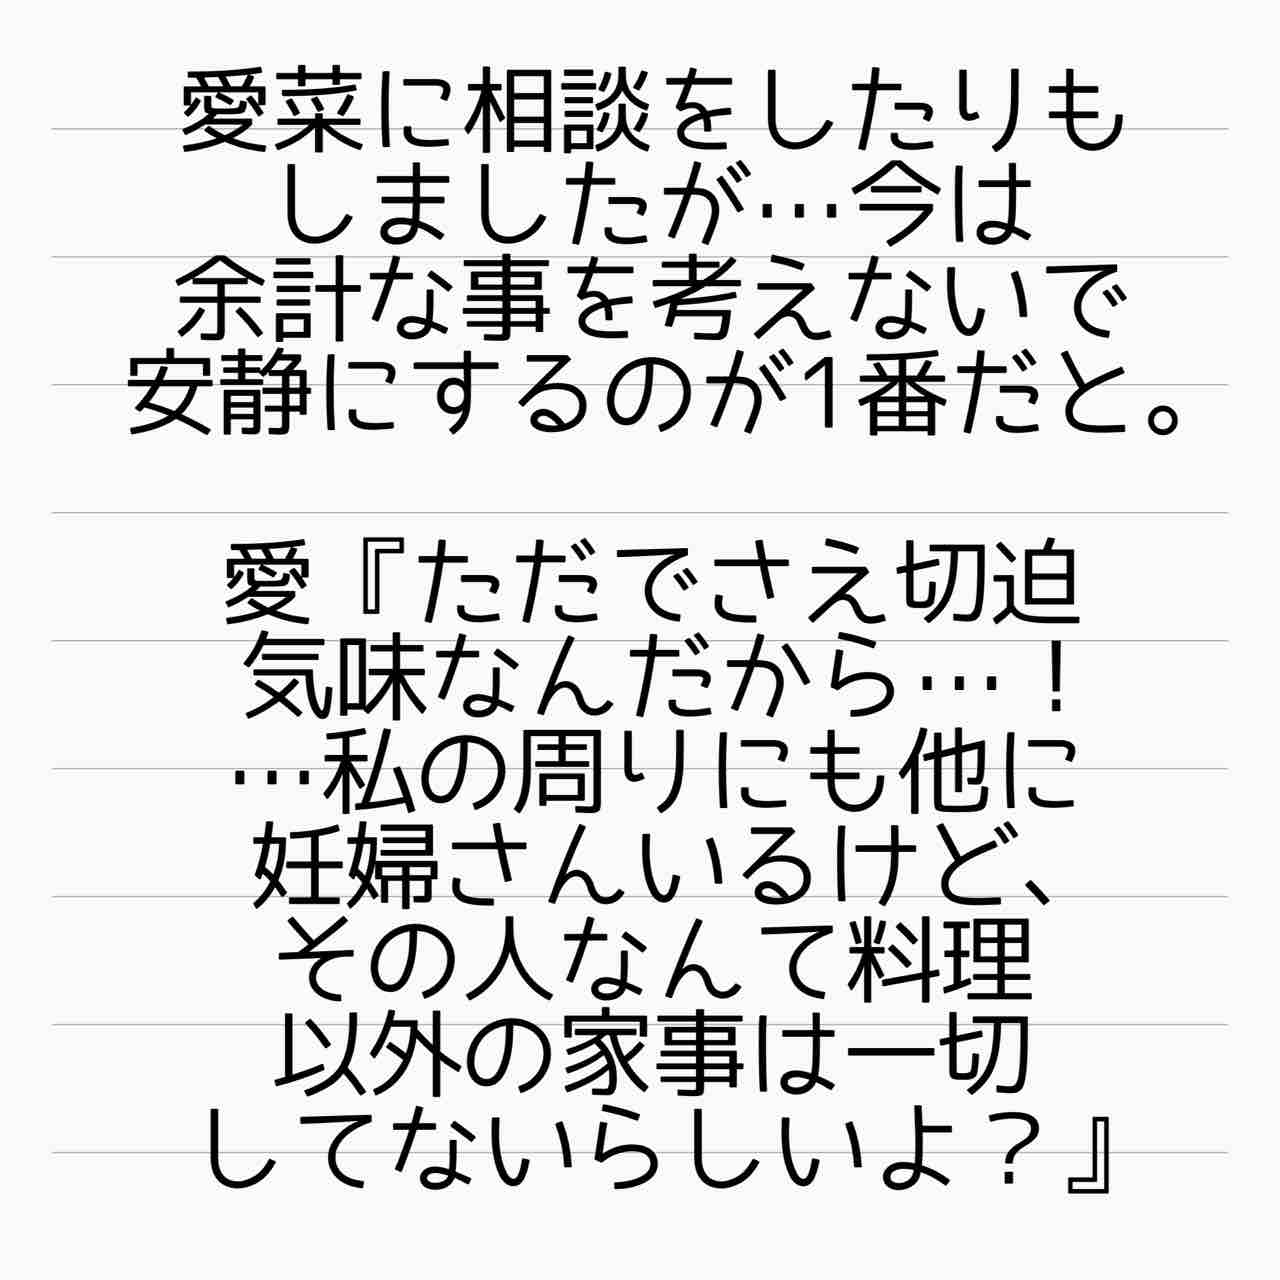 愛菜に相談をしたりも
しましたが…今は
余計な事を考えないで
安静にするのが1番だと。
愛『ただでさえ切迫
気味なんだから…！
…私の周りにも他に
妊婦さんいるけど、
その人なんて料理
以外の家事は一切
してないらしいよ？』